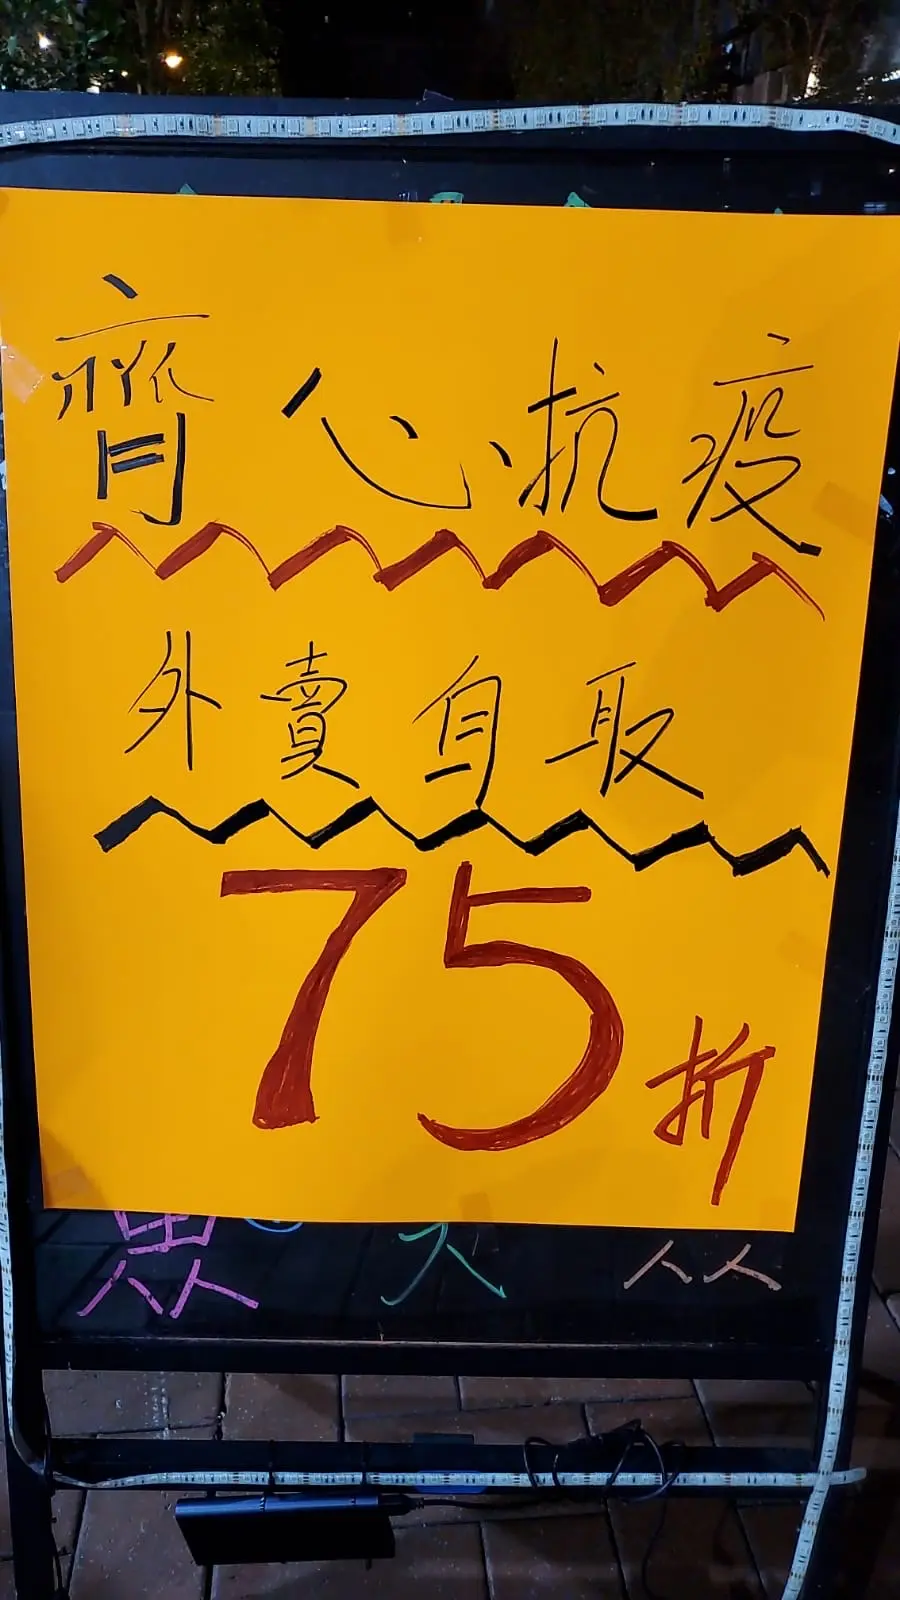 齊心抗疫
外賣自取
75折